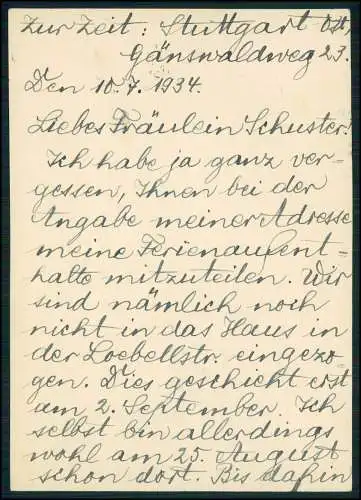 Zur Zeit: Stuttgart Ost,
Gänswaldweg 23.
Den 10.7.1934.
Liebes Fräulein Schuster!
Ich habe ja ganz ver-
gessen, Ihnen bei der
Angabe meiner Adresse
meine Ferienaufent-
halte mitzuteilen. Wir
sind nämlich noch
nicht in das Haus in
der Loebellstr. eingezo-
gen. Dies geschieht erst
am 2. September. Ich
selbst bin allerdings
wohl am 25. August
schon dort. Bis dahin